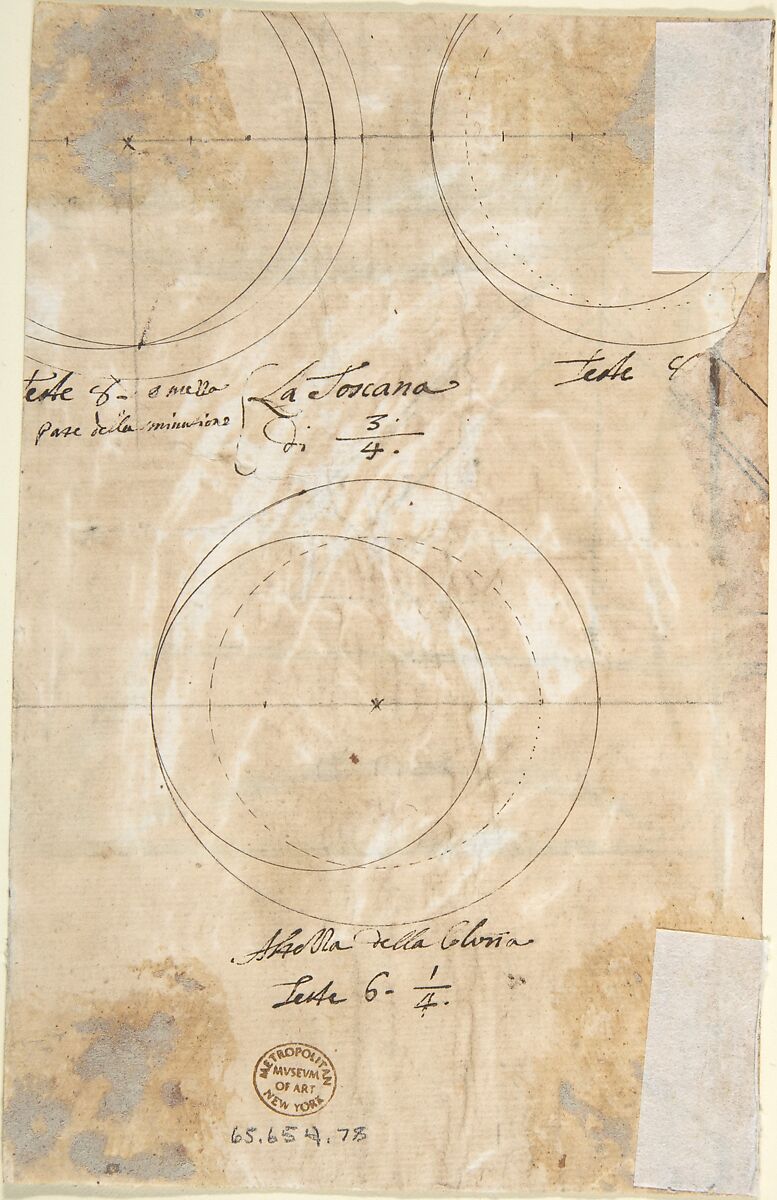 Teste 8- e mezza
Teste 8
pare della minutione
La Toscana
di 3/4.
Altezza della Colona
Teste 6- 1/4.
METROPOLITAN
MVSEVM
OF ART
NEW YORK
65.654.78